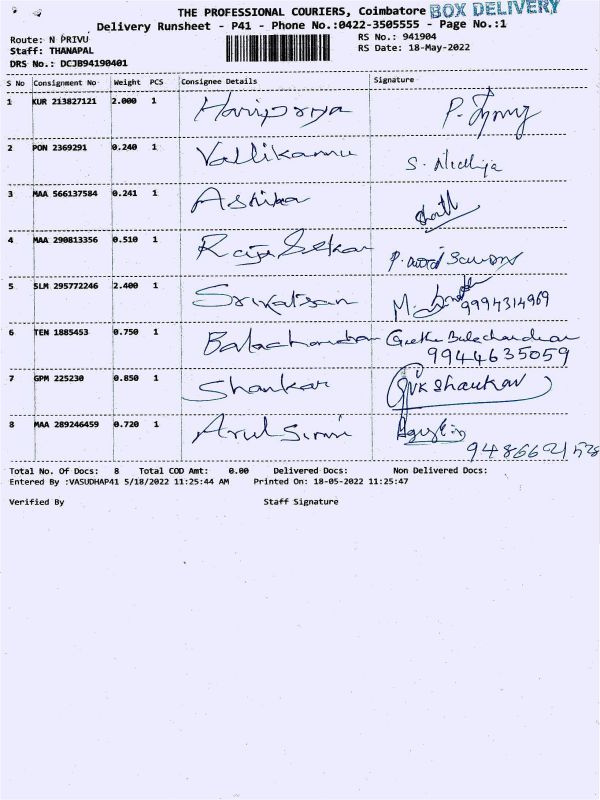 THE PROFESSIONAL COURIERS, Coimbatore BOX DELIVERY
Delivery Runsheet - P41 - Phone No.:0422-3505555 - Page No.:1
Route: N PRIVU RS No.: 941904
Staff: THANAPAL RS Date: 18-May-2022
DRS No.: DCJB94190401
S No Consignment No Weight PCS Consignee Details Signature
1 KUR 213827121 2.000 1 Haripriya P.
2 PON 2369291 0.240 1 Vallikannu S. Nidhija
3 MAA 566137584 0.241 1 Ashika
4 MAA 290813356 0.510 1 Raja Sekar P.
5 SLM 295772246 2.400 1 Srivatsan M.
9994314969
6 TEN 1885453 0.750 1 Balachandran Geetha Balachandran
9944635059
7 GPM 225230 0.850 1 Shankar GVK Shankar
8 MAA 289246459 0.720 1 Arul
Total No. Of Docs: 8 Total COD Amt: 0.00 Delivered Docs: Non Delivered Docs:
Entered By :VASUDHAP41 5/18/2022 11:25:44 AM Printed On: 18-05-2022 11:25:47
Verified By Staff Signature